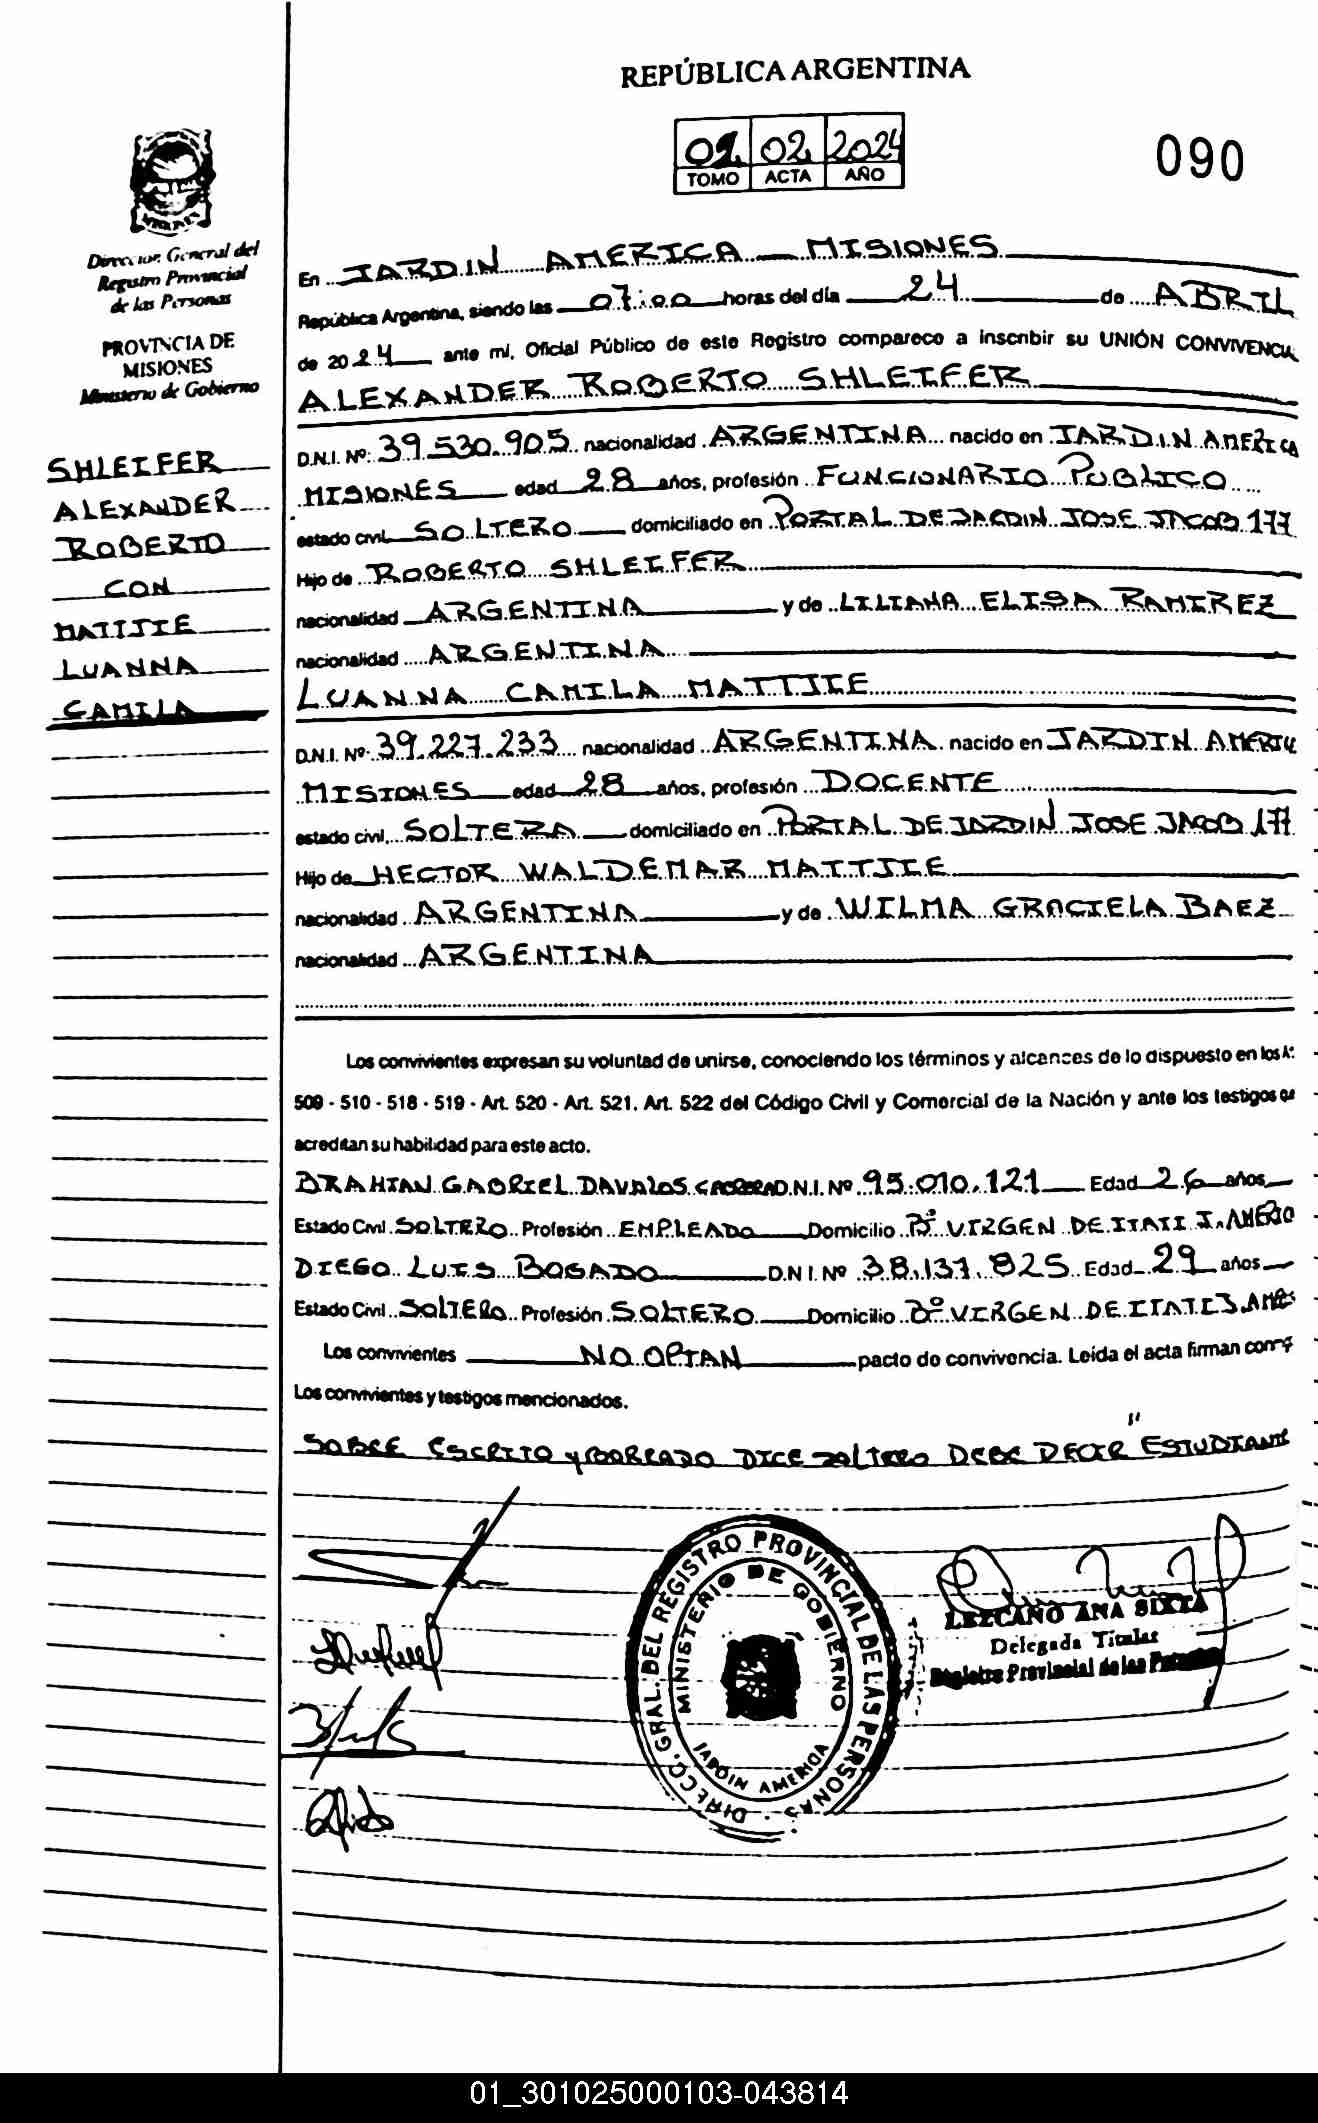 REPÚBLICA ARGENTINA
02 02 2024
TOMO ACTA AÑO
090
Dirección General del
Registro Provincial
de las Personas
PROVINCIA DE
MISIONES
Ministerio de Gobierno
SHLEIFER
ALEXANDER
ROBERTO
CON
MATTJIE
LUANNA
CAMILA
En JARDIN AMERICA MISIONES
República Argentina, siendo las 07:00 horas del día 24 de ABRIL
de 2024 ante mi, Oficial Público de este Registro comparece a inscribir su UNIÓN CONVIVENCIA
ALEXANDER ROBERTO SHLEIFER
D.N.I. Nº: 39.530.905 nacionalidad ARGENTINA nacido en JARDIN AMERICA
MISIONES edad 28 años, profesión FUNCIONARIO PUBLICO
estado civil SOLTERO domiciliado en PORTAL DE JARDIN JOSE JACOB 177
Hijo de ROBERTO SHLEIFER
nacionalidad ARGENTINA y de LILIANA ELISA RAMIREZ
nacionalidad ARGENTINA
LUANNA CAMILA MATTJIE
D.N.I. Nº: 39.227.233 nacionalidad ARGENTINA nacido en JARDIN AMERIC
MISIONES edad 28 años, profesión DOCENTE
estado civil SOLTERA domiciliado en PORTAL DE JARDIN JOSE JACOB 177
Hijo de HECTOR WALDEMAR MATTJIE
nacionalidad ARGENTINA y de WILMA GRACIELA BAEZ
nacionalidad ARGENTINA
Los convivientes expresan su voluntad de unirse, conociendo los términos y alcances de lo dispuesto en los A
509 - 510 - 518 - 519 - Art. 520 - Art. 521. Art. 522 del Código Civil y Comercial de la Nación y ante los testigos
acreditan su habilidad para este acto.
BRAHIAN GABRIEL DAVALOS D.N.I. Nº 95.010.121 Edad 26 años
Estado Civil SOLTERO Profesión EMPLEADO Domicilio Bº VIRGEN DE ITATI J. AMERIC
DIEGO LUIS BOGADO D.N.I. Nº 38.137.825 Edad 29 años
Estado Civil SOLTERO Profesión SOLTERO Domicilio Bº VIRGEN DE ITATI J. AME
Los convivientes NO OPTAN pacto de convivencia. Leída el acta firman
Los convivientes y testigos mencionados.
SOBRE ESCRITO y BORRADO DICE SOLTERO DEBE DECIR "ESTUDIANTE
DIRECC. GRAL. DEL REGISTRO PROVINCIAL DE LAS PERSONAS
MINISTERIO DE GOBIERNO
JARDIN AMERICA
LEZCANO ANA SIXTA
Delegada Titular
Registro Provincial de las Personas
01_301025000103-043814